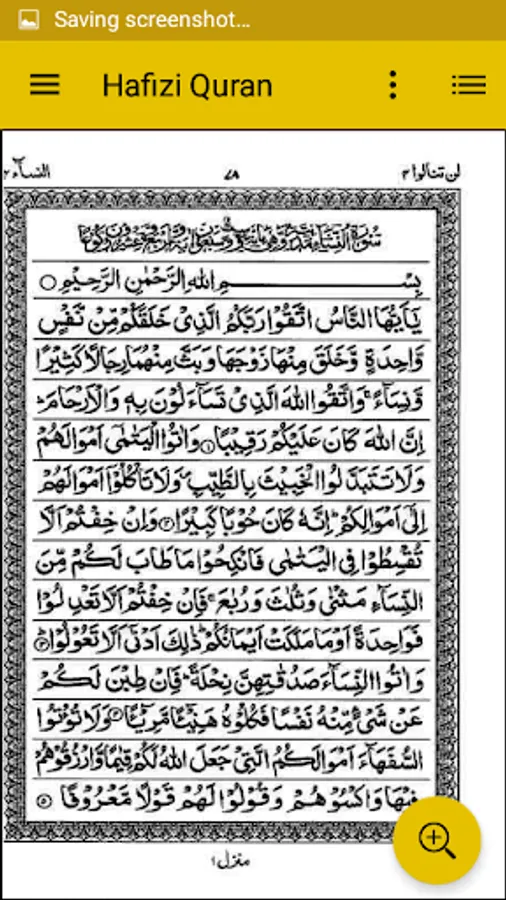 Saving screenshot...
Hafizi Quran
لن تنالوا ۴
۷۸
النسآء ۴
بِسْمِ اللهِ الرَّحْمٰنِ الرَّحِيْمِ
يٰۤاَيُّهَا النَّاسُ اتَّقُوْا رَبَّكُمُ الَّذِيْ خَلَقَكُمْ مِّنْ نَّفْسٍ
وَّاحِدَةٍ وَّخَلَقَ مِنْهَا زَوْجَهَا وَبَثَّ مِنْهُمَا رِجَالًا كَثِيْرًا
وَّنِسَآءً ۚ وَاتَّقُوا اللهَ الَّذِيْ تَسَآءَلُوْنَ بِهٖ وَالْاَرْحَامَ ؕ
اِنَّ اللهَ كَانَ عَلَيْكُمْ رَقِيْبًا ﴿۱﴾ وَاٰتُوا الْيَتٰمٰٓى اَمْوَالَهُمْ
وَلَا تَتَبَدَّلُوا الْخَبِيْثَ بِالطَّيِّبِ ۪ وَلَا تَاْكُلُوْۤا اَمْوَالَهُمْ
اِلٰٓى اَمْوَالِكُمْ ؕ اِنَّهٗ كَانَ حُوْبًا كَبِيْرًا ﴿۲﴾ وَاِنْ خِفْتُمْ اَلَّا
تُقْسِطُوْا فِي الْيَتٰمٰى فَانْكِحُوْا مَا طَابَ لَكُمْ مِّنَ
النِّسَآءِ مَثْنٰى وَثُلٰثَ وَرُبٰعَ ۚ فَاِنْ خِفْتُمْ اَلَّا تَعْدِلُوْا
فَوَاحِدَةً اَوْ مَا مَلَكَتْ اَيْمَانُكُمْ ؕ ذٰلِكَ اَدْنٰٓى اَلَّا تَعُوْلُوْا ﴿۳﴾
وَاٰتُوا النِّسَآءَ صَدُقٰتِهِنَّ نِحْلَةً ؕ فَاِنْ طِبْنَ لَكُمْ
عَنْ شَيْءٍ مِّنْهُ نَفْسًا فَكُلُوْهُ هَنِيْٓئًا مَّرِيْٓئًا ﴿۴﴾ وَلَا تُؤْتُوا
السُّفَهَآءَ اَمْوَالَكُمُ الَّتِيْ جَعَلَ اللهُ لَكُمْ قِيٰمًا وَّارْزُقُوْهُمْ
فِيْهَا وَاكْسُوْهُمْ وَقُوْلُوْا لَهُمْ قَوْلًا مَّعْرُوْفًا ﴿۵﴾
منزل ۱